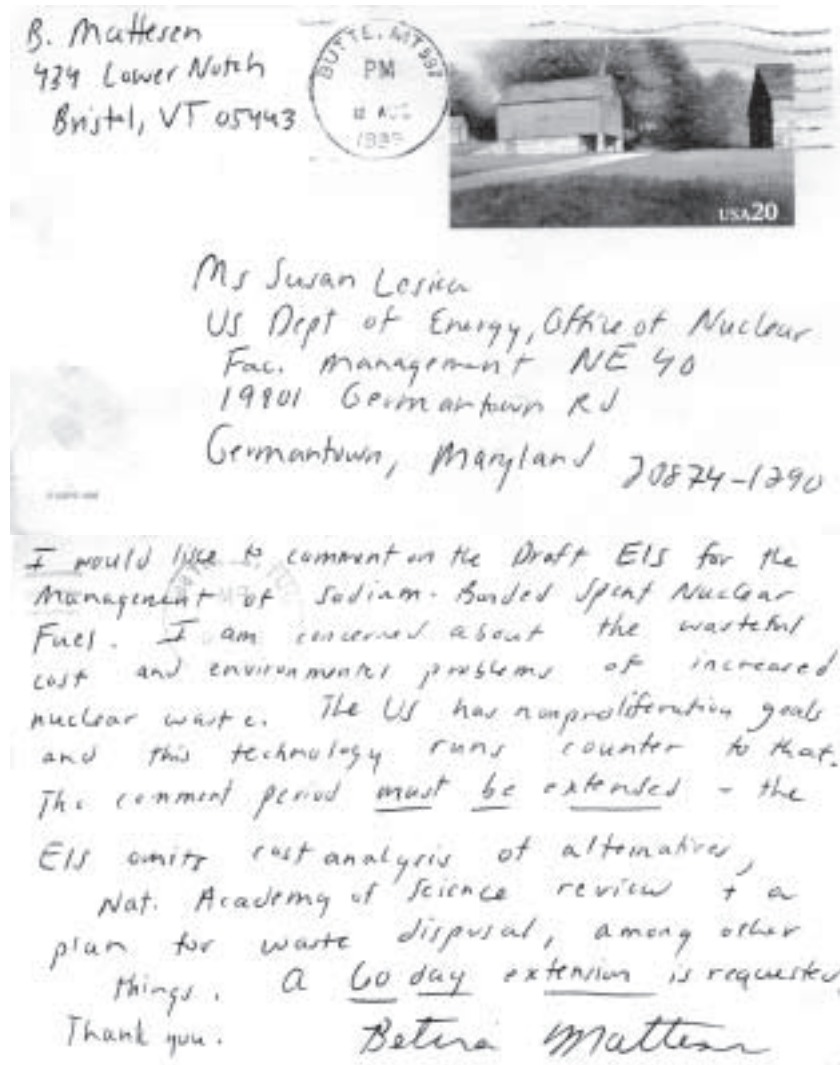 B. Mattesen
434 Lower Notch
Bristol, VT 05443
BUTTE, MT
PM
AUG
1999
USA20
Ms Susan Lesica
US Dept of Energy, Office of Nuclear
Fac. Management NE 40
19901 Germantown Rd
Germantown, Maryland 20874-1290
I would like to comment on the Draft EIS for the
Management of Sodium-Bonded Spent Nuclear
Fuel. I am concerned about the wasteful
cost and environmental problems of increased
nuclear waste. The US has nonproliferation goals
and this technology runs counter to that.
The comment period must be extended - the
EIS omits cost analysis of alternatives,
Nat. Academy of Science review + a
plan for waste disposal, among other
things. A 60 day extension is requested.
Thank you. Betina